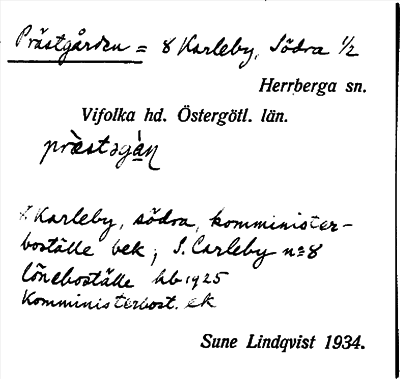 Prästgården = 8 Karleby, Södra 1/2
Herrberga sn.
Vifolka hd. Östergötl. län.
præ̀stəgàṇ
Karleby, södra, komminister-
boställe bek, S. Carleby nº 8
löneboställe hb 1925
Komministerbost. ek
Sune Lindqvist 1934.